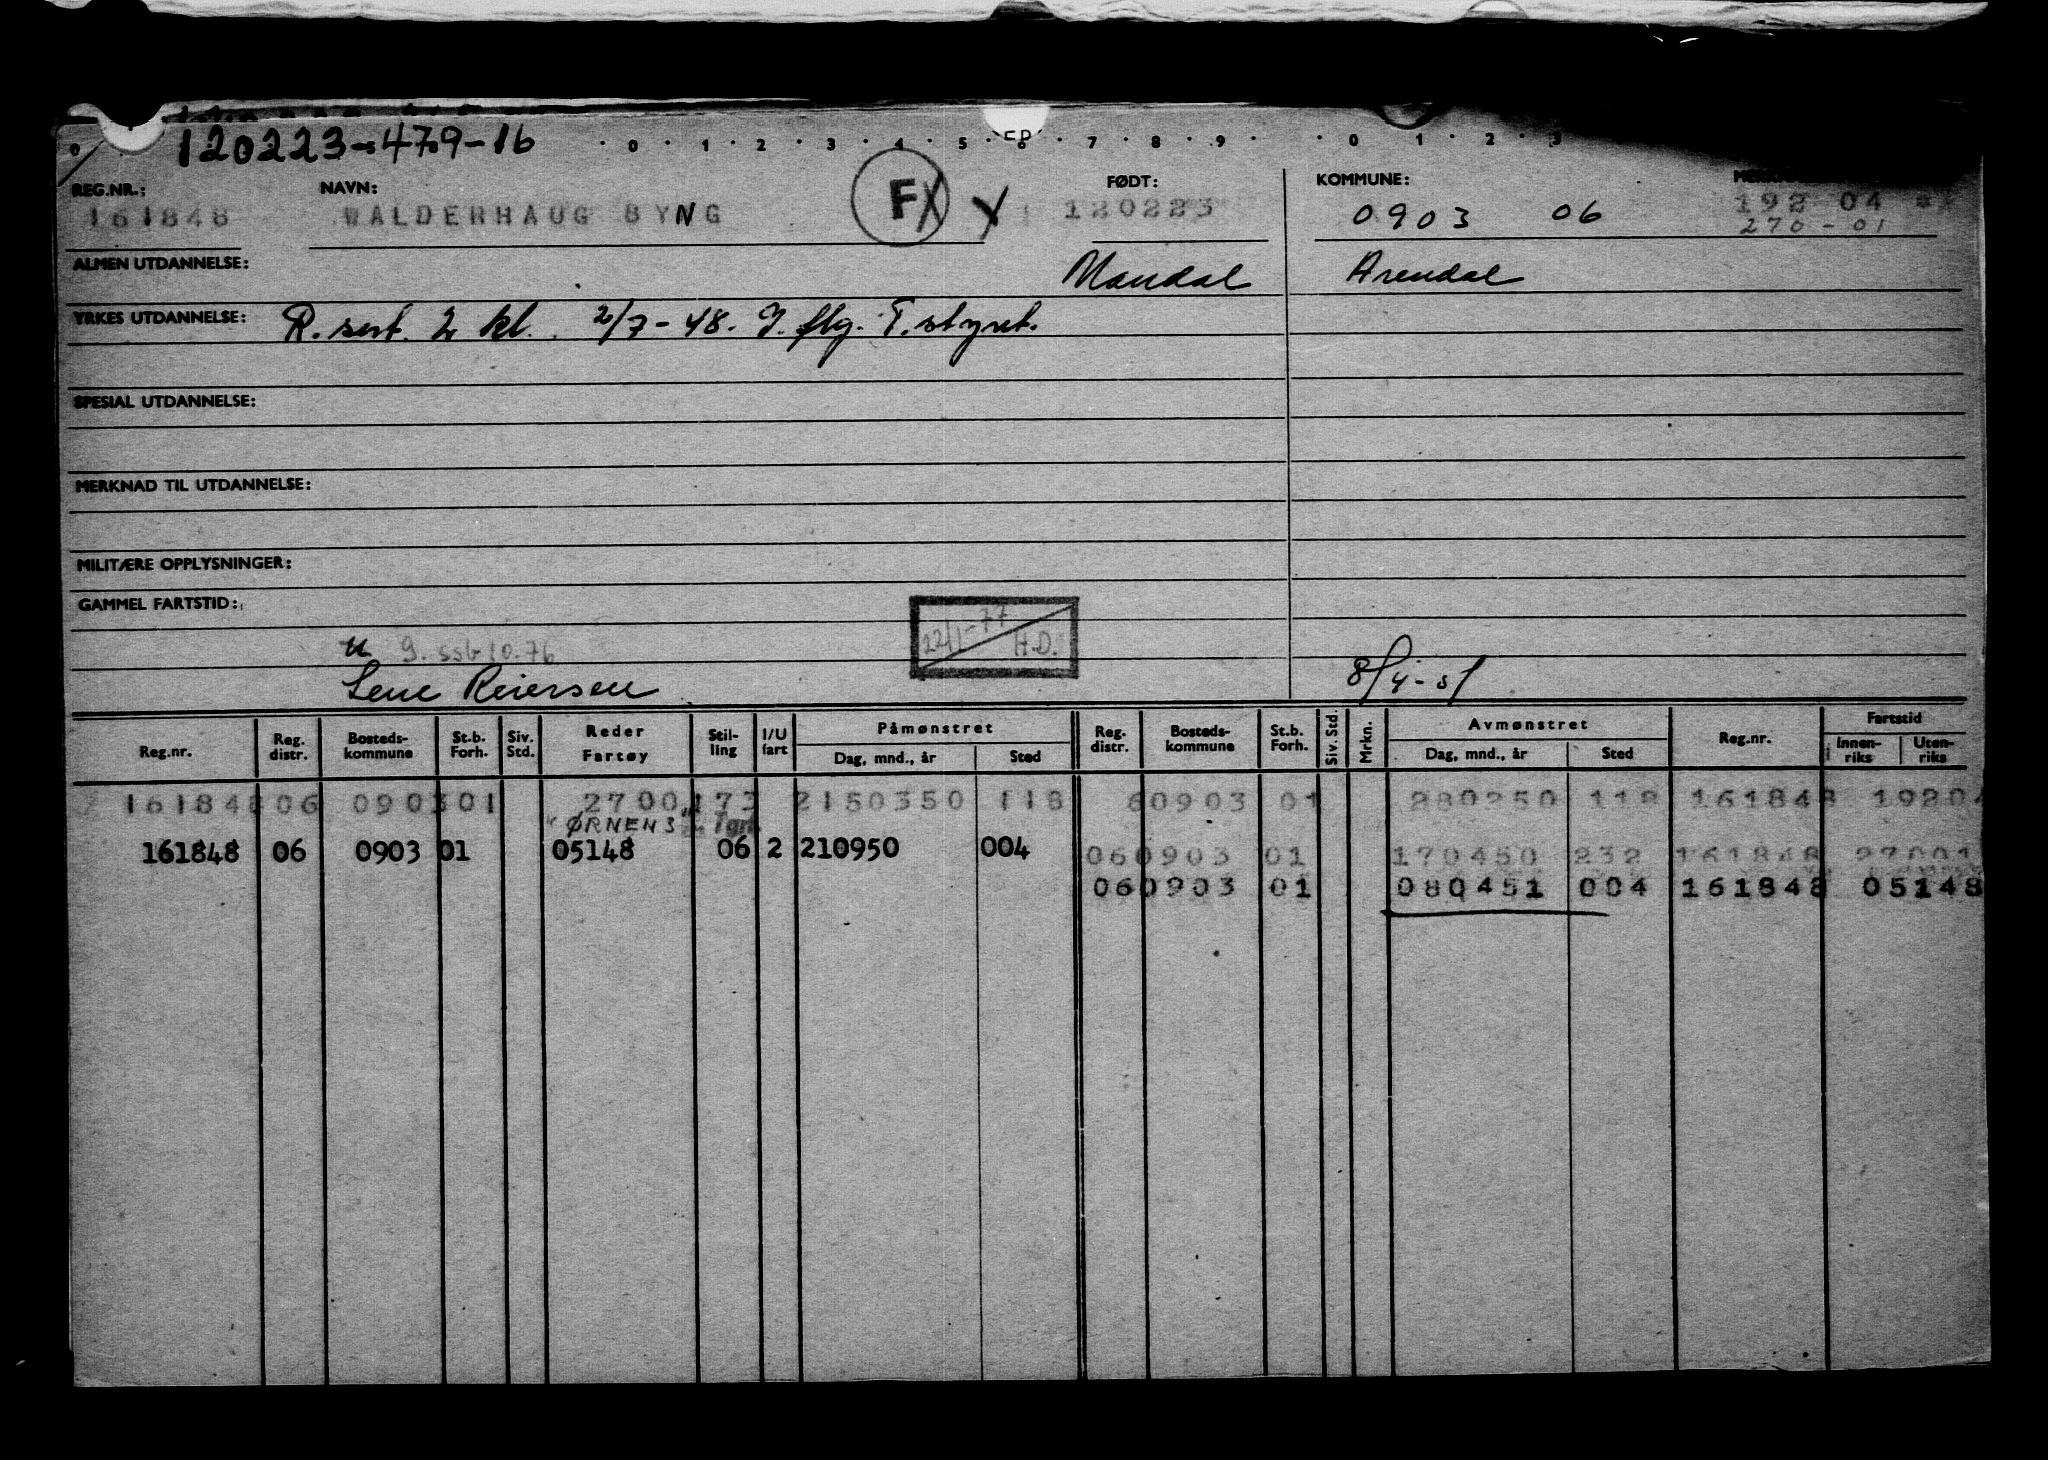 120223-479-16
0 1 2 3 4 5 6 7 8 9 0 1 2 3
REG.NR.: NAVN: FØDT: KOMMUNE:
161848 WALDERHAUG BYNG F X 120223 0903 06 192 04
270-01
ALMEN UTDANNELSE: Mandal Arendal
YRKES UTDANNELSE: R. sert. 2 kl. 2/7-48. J. flg. T. styret.
SPESIAL UTDANNELSE:
MERKNAD TIL UTDANNELSE:
MILITÆRE OPPLYSNINGER:
GAMMEL FARTSTID:
22/1-77 H.D.
u 9. ssb 10.76
Lene Reiersen 8/4-51
Reg.nr. Reg. distr. Bosteds-kommune St.b. Forh. Siv. Std. Reder Fartøy Stil-ling I/U fart Påmønstret Dag, mnd., år Sted Reg. distr. Bosteds-kommune St.b. Forh. Siv. Std. Mrkn. Avmønstret Dag, mnd., år Sted Reg.nr. Fartstid Innen-riks Uten-riks
161848 06 0903 01 2700 173 2150350 118 60903 01 280250 118 161848 19204
"ØRNEN 3"
161848 06 0903 01 05148 06 2 210950 004 060903 01 170450 232 161848 27001
060903 01 080451 004 161848 05148